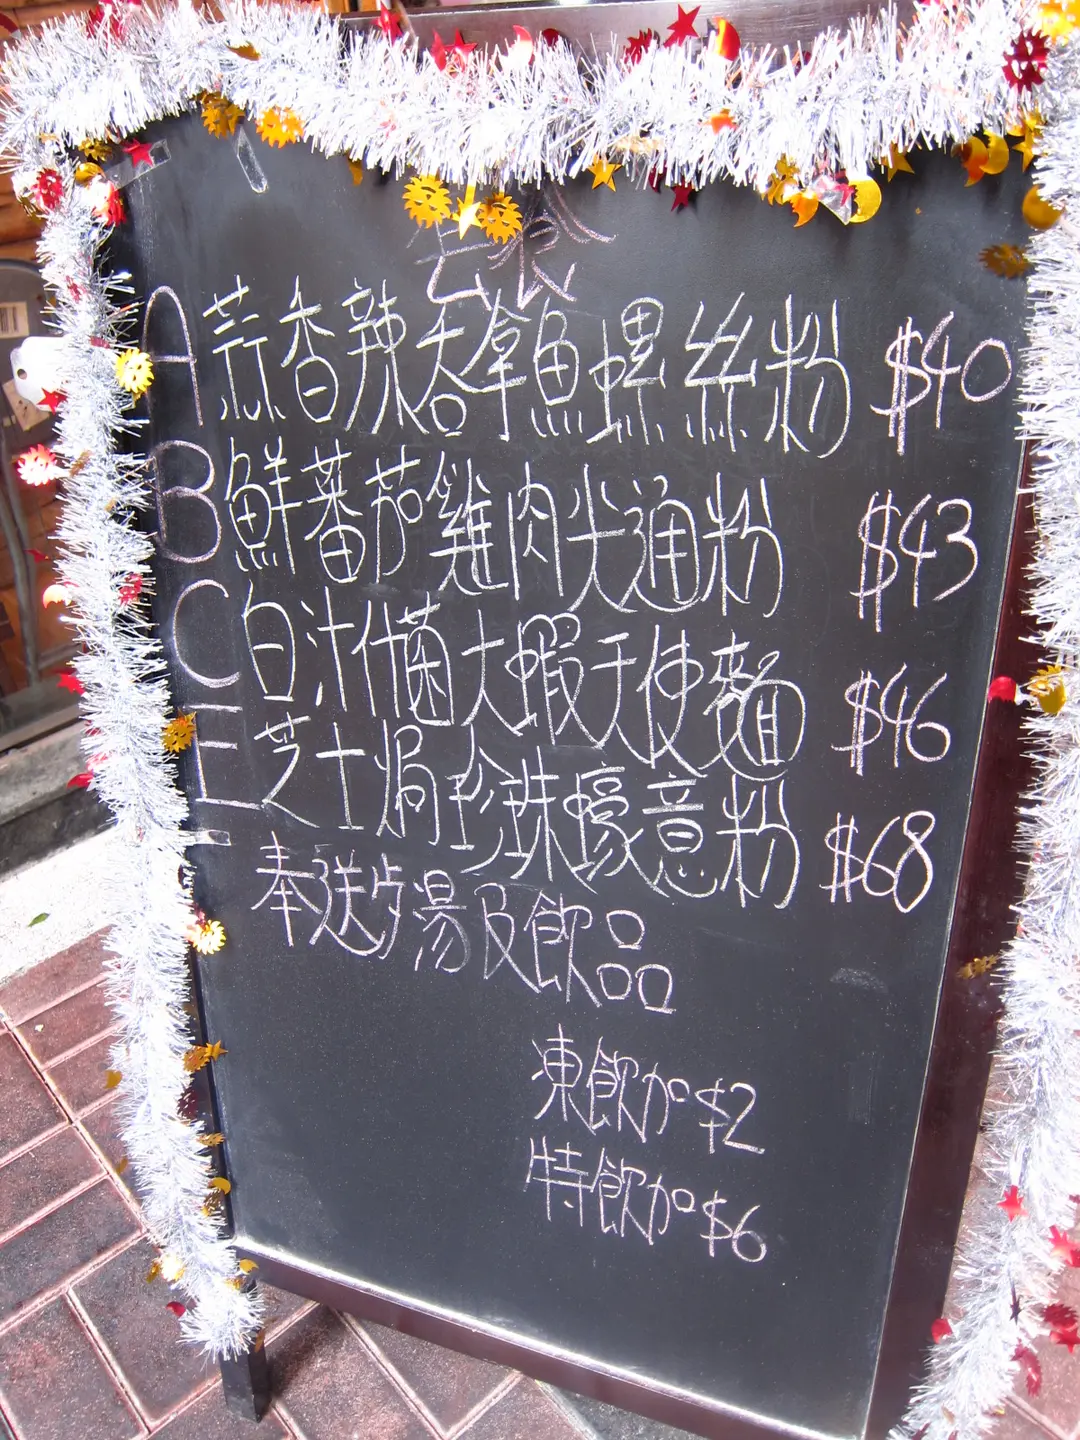 A 蒜香辣吞拿魚螺絲粉 $40
B 鮮蕃茄雞肉尖通粉 $43
C 白汁什菌大蝦天使麵 $46
E 芝士焗珍珠蠔意粉 $68
奉送歺湯及飲品
凍飲加$2
特飲加$6